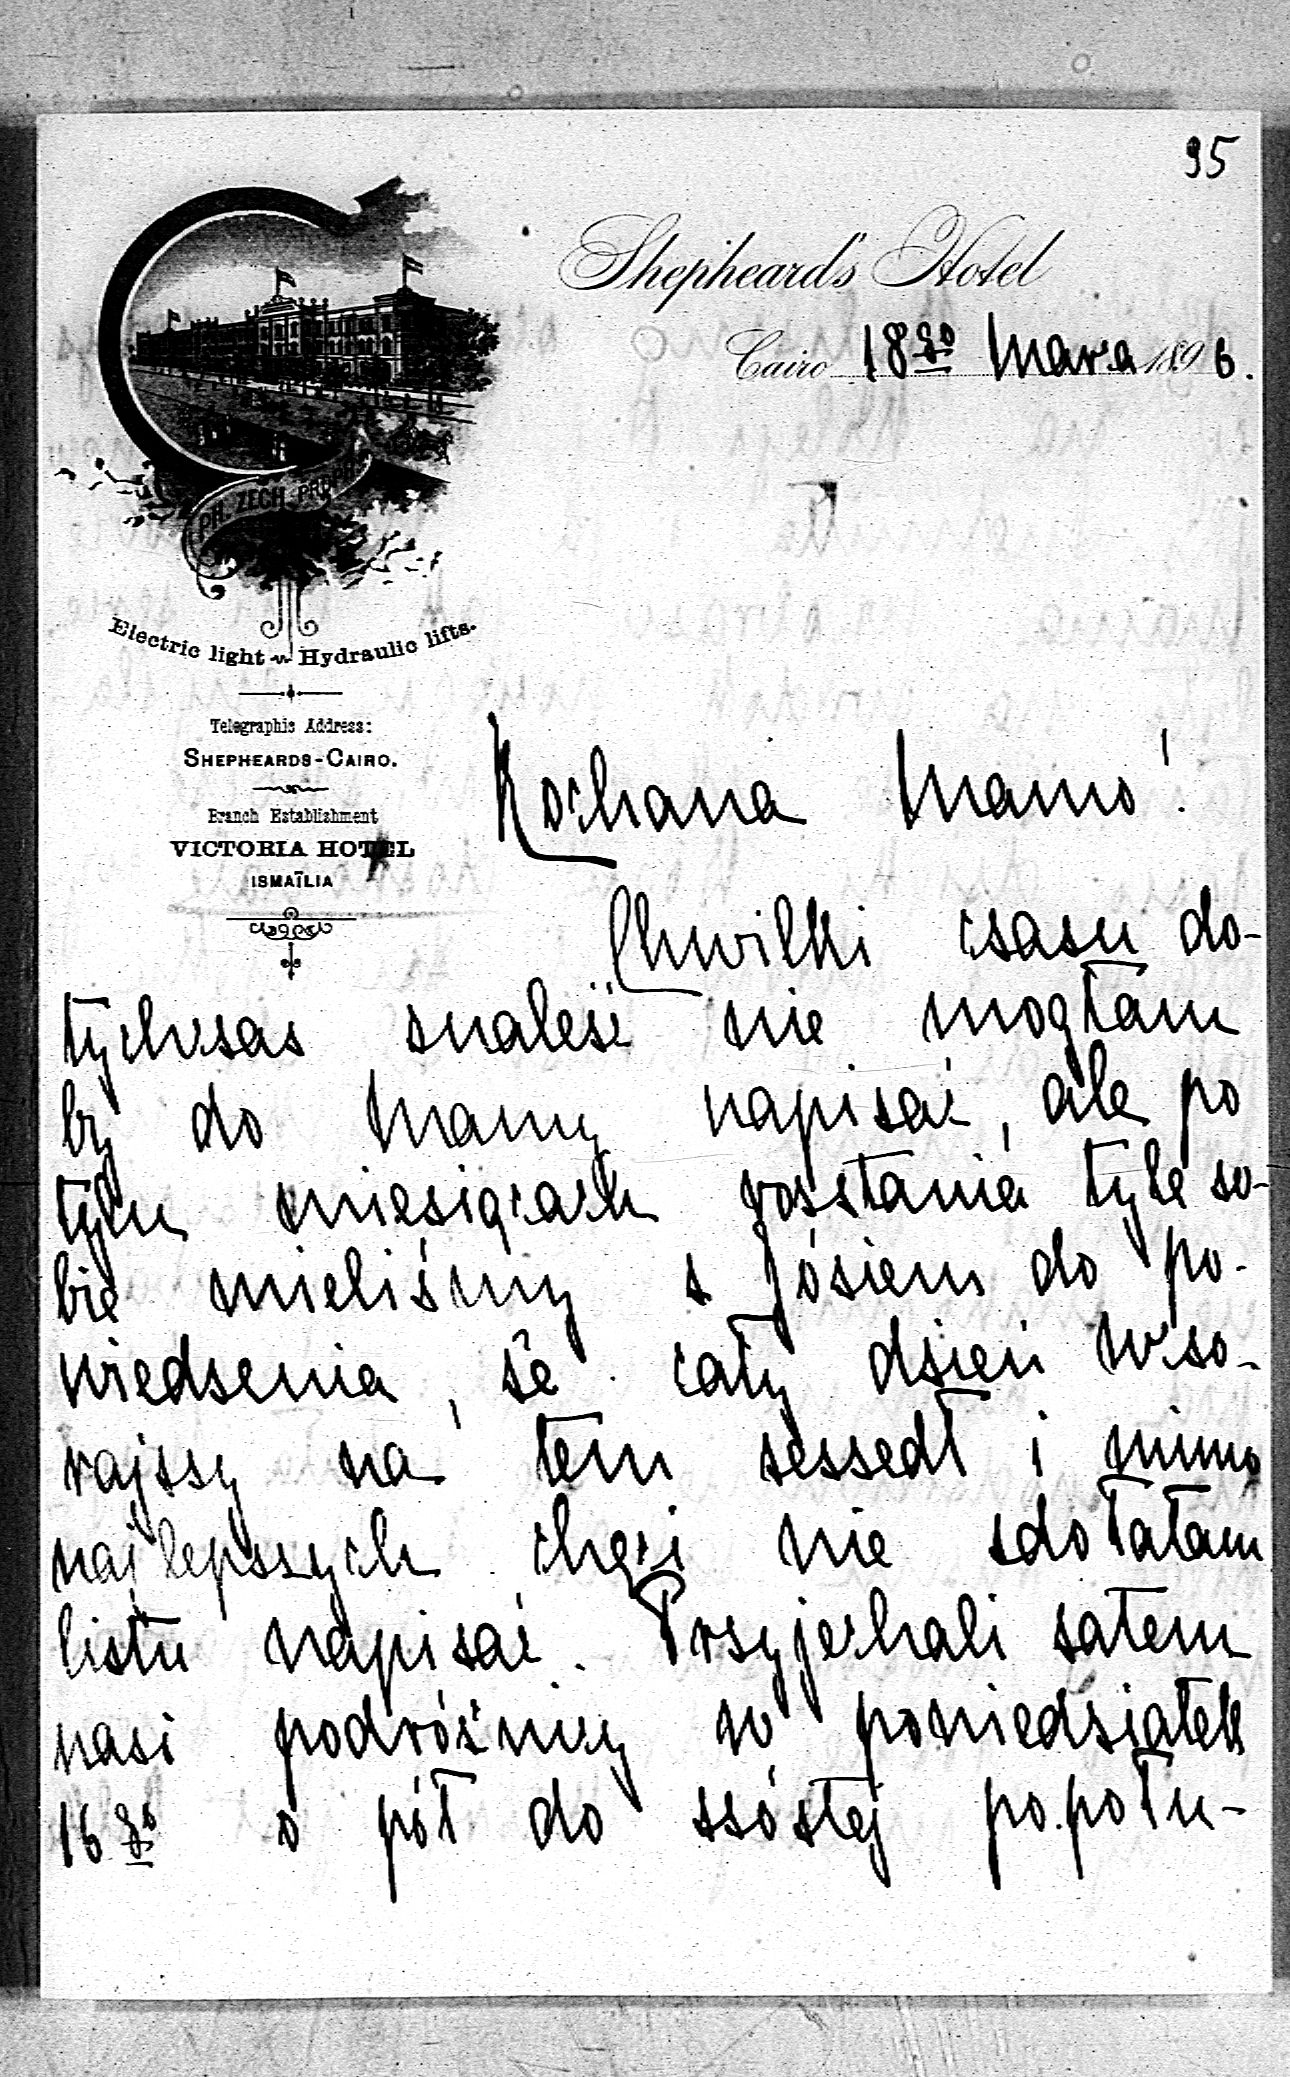 95
Shepheard's Hotel
Cairo 18go Marca 1896.
PH. ZECH, PROPR.
Electric light Hydraulic lifts.
Telegraphic Address:
SHEPHEARDS-CAIRO.
Branch Establishment
VICTORIA HOTEL
ISMAÏLIA
Kochana Mamo!
Chwilki czasu do-
tychczas znaleźć nie mogłam
by do Mamy napisać, ale po
tylu miesiącach rozstania tyle so-
bie mieliśmy z Józiem do po-
wiedzenia, że cały dzień wczo-
rajszy na tem zeszedł i mimo
najlepszych chęci nie zdołałam
listu napisać. Przyjechali zatem
nasi podróżnicy w poniedziałek
16go o pół do szóstej po połu-